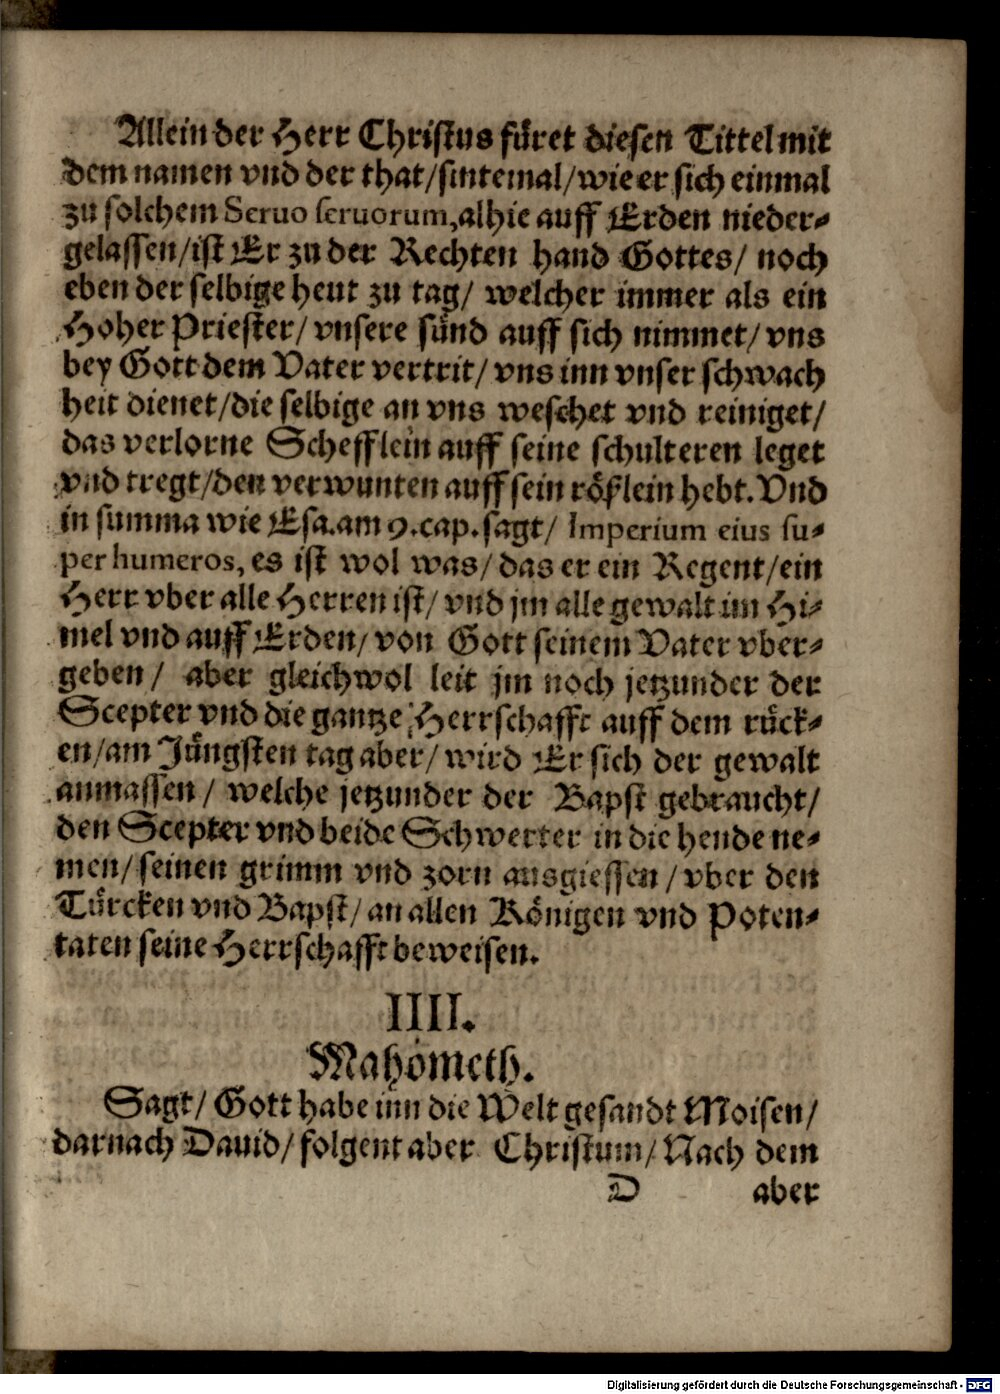 Allein der Herr Christus füret diesen Tittel mit
dem namen vnd der that/sintemal/wie er sich einmal
zu solchem Seruo seruorum,alhie auff Erden nieder-
gelassen/ist Er zu der Rechten hand Gottes/ noch
eben der selbige heut zu tag/ welcher immer als ein
Hoher Priester/ vnsere sünd auff sich nimmet/ vns
bey Gott dem Vater vertrit/ vns inn vnser schwach
heit dienet/die selbige an vns weschet vnd reiniget/
das verlorne Schefflein auff seine schulteren leget
vnd tregt/den verwunten auff sein rößlein hebt. Vnd
in summa wie Esa.am 9.cap.sagt/ Imperium eius su-
per humeros, es ist wol was/ das er ein Regent/ein
Herr vber alle Herren ist/ vnd jm alle gewalt im Hi-
mel vnd auff Erden/ von Gott seinem Vater vber-
geben/ aber gleichwol leit jm noch jetzunder der
Scepter vnd die gantze Herrschafft auff dem rück-
en/am Jüngsten tag aber/ wird Er sich der gewalt
anmassen/ welche jetzunder der Bapst gebraucht/
den Scepter vnd beide Schwerter in die hende ne-
men/ seinen grimm vnd zorn ausgiessen/ vber den
Türcken vnd Bapst/ an allen Königen vnd Poten-
taten seine Herrschafft beweisen.
IIII.
Mahometh.
Sagt/ Gott habe inn die Welt gesandt Moisen/
darnach Dauid/ folgent aber Christum/ Nach dem
D aber
Digitalisierung gefördert durch die Deutsche Forschungsgemeinschaft - DFG